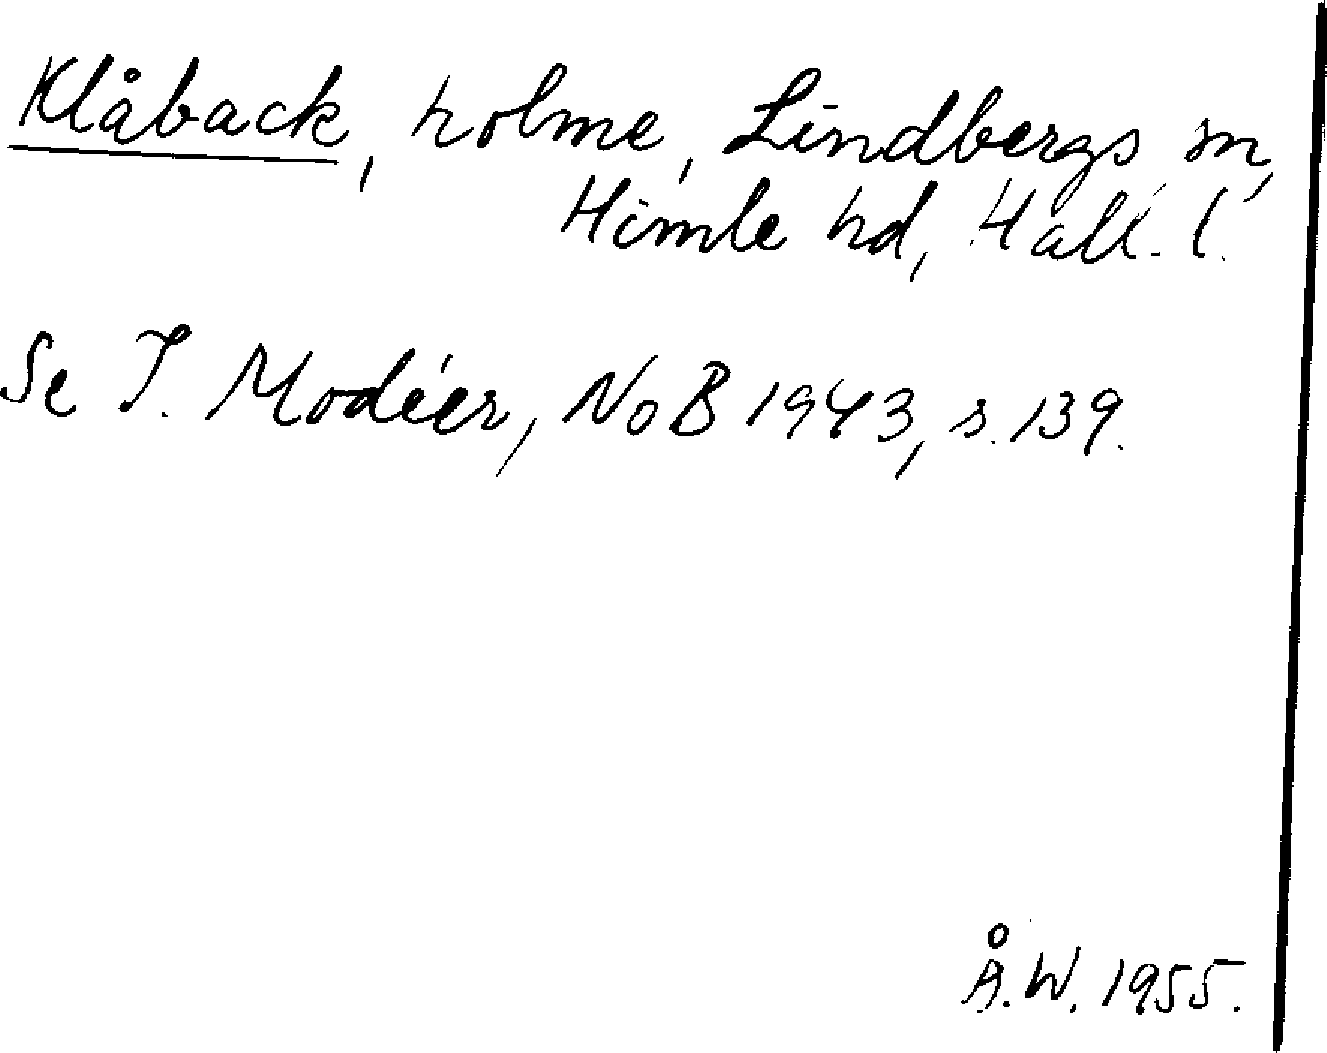 Klåback, holme, Lindbergs sn,
Himle hd, Hall. l.
Se I. Modéer, NoB 1943, s. 139.
Å.W. 1955.